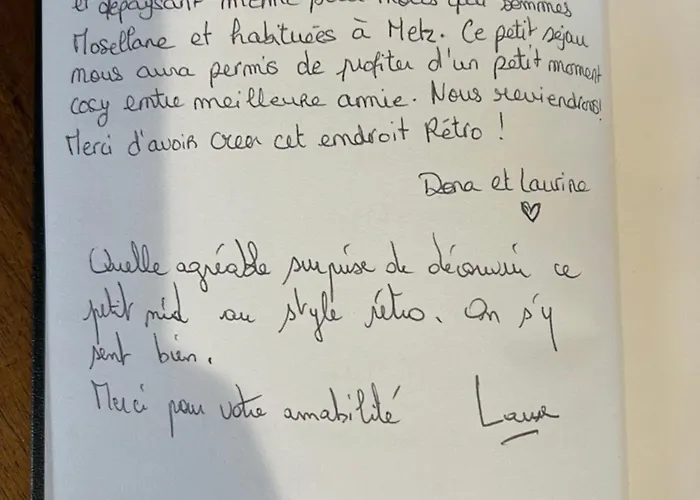 et dépaysant même pour nous qui sommes
Mosellane et habituées à Metz. Ce petit séjour
nous aura permis de profiter d'un petit moment
cosy entre meilleure amie. Nous reviendrons!
Merci d'avoir créer cet endroit Rétro !
Dena et Laurine
Quelle agréable surprise de découvrir ce
petit nid au style rétro. On s'y
sent bien.
Merci pour votre amabilité
Laure